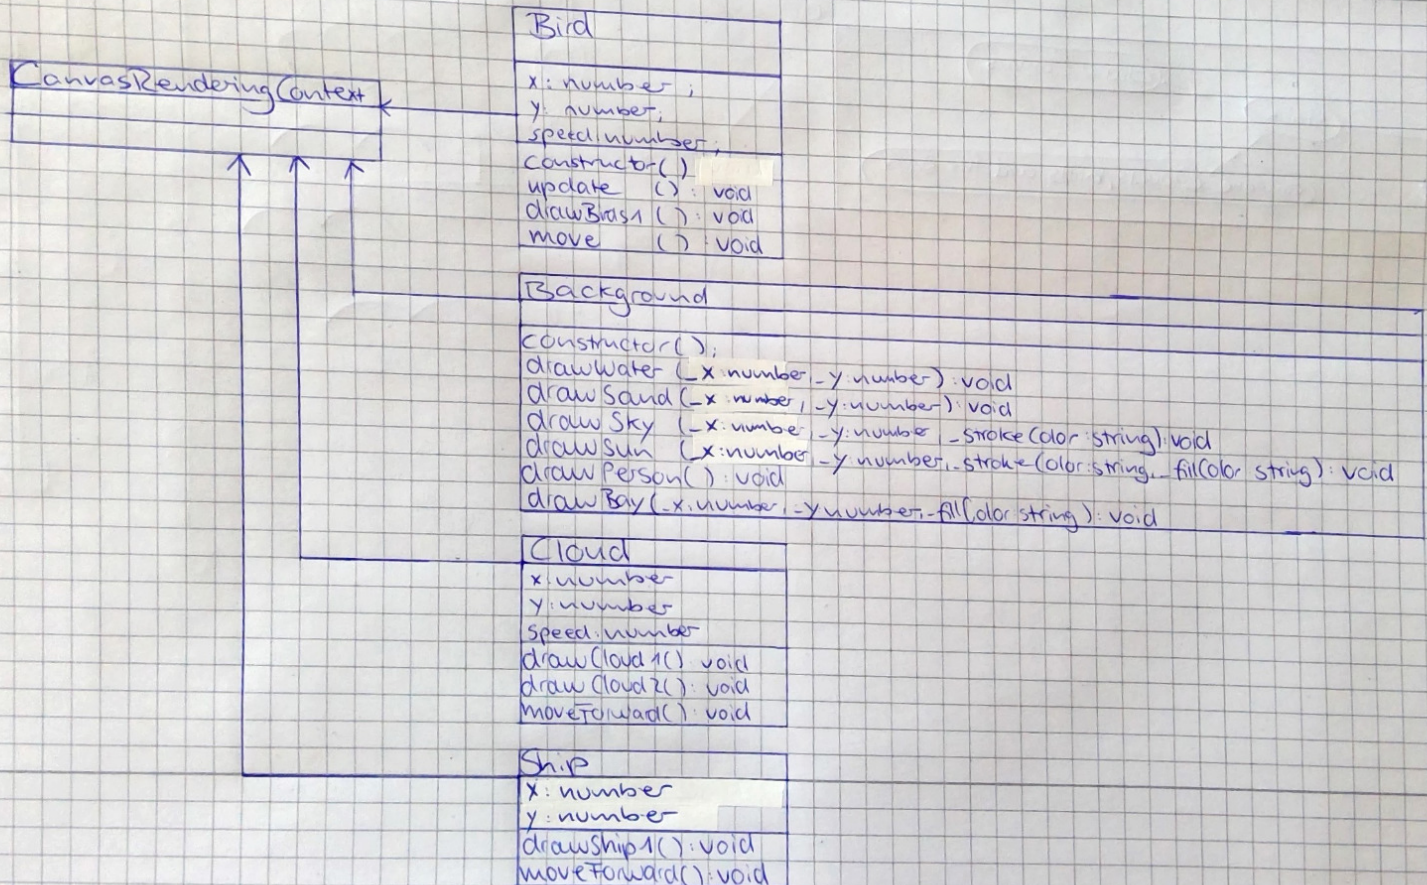 Bird
CanvasRenderingContext
x: number;
y: number;
speed: number;
constructor()
update (): void
move (): void
Background
constructor();
drawWater (_x:number, _y:number): void
drawSand (_x:number, _y:number): void
drawSky (_x:number, _y:number, _strokeColor:string): void
drawSun (_x:number, _y:number, _strokeColor:string, _fillColor string): void
drawPerson(): void
drawBay (_x:number, _y number, _fillColor string): void
Cloud
x:number
y:number
speed:number
drawCloud1(): void
drawCloud2(): void
moveForwad(): void
Ship
x: number
y: number
drawShip1(): void
moveForward(): void